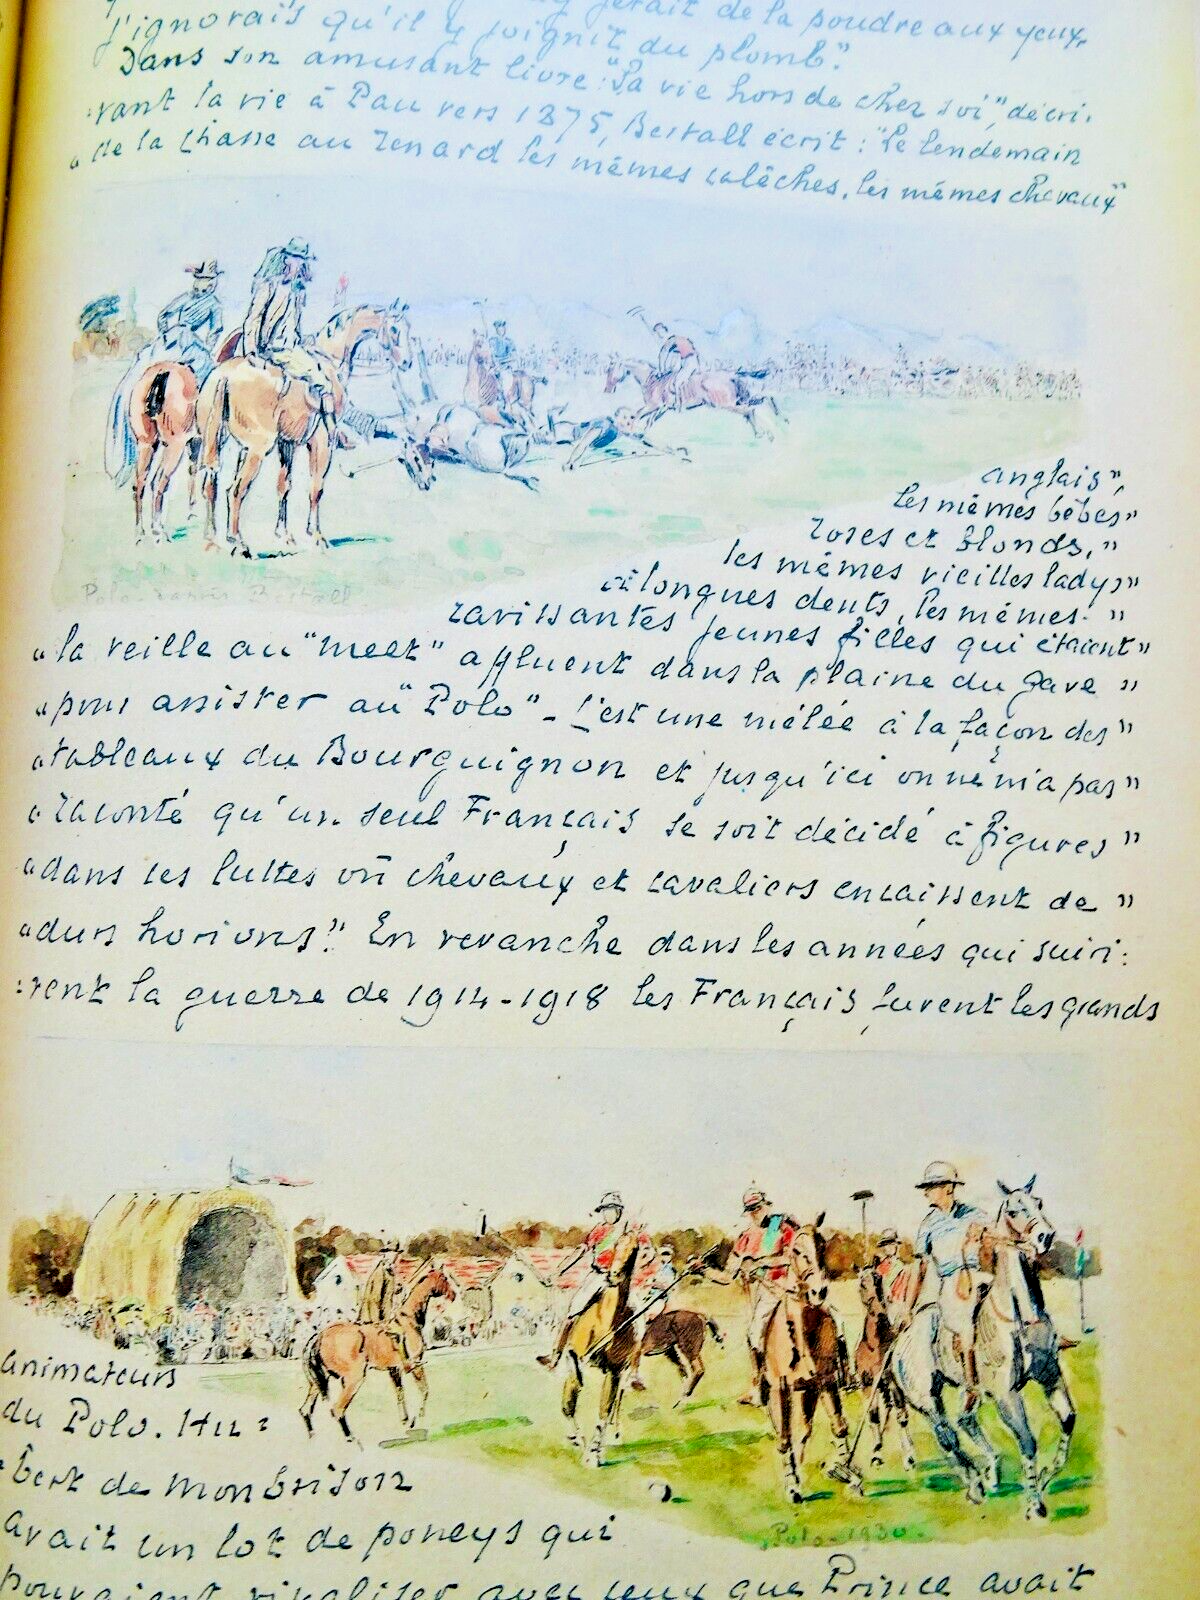 jetait de la poudre aux yeux,
j'ignorais qu'il y joignit du plomb."
Dans son amusant livre: "La vie hors de chez soi", décri:
:vant la vie à Pau vers 1875, Bertall écrit: "Le lendemain
"de la chasse au renard les mêmes calèches, les mêmes chevaux"
anglais",
les mêmes bébés"
roses et blonds,"
les mêmes vieilles ladys"
à longues dents, les mêmes "
ravissantes jeunes filles qui étaient"
"la veille au "meet" affluent dans la plaine du Gave "
"pour assister au "Polo" - C'est une mêlée à la façon des"
"tableaux du Bourguignon et jusqu'ici on ne m'a pas"
"raconté qu'un seul Français se soit décidé à figurer"
"dans ces luttes où chevaux et cavaliers encaissent de "
"durs horions." En revanche dans les années qui suivi:
:rent la guerre de 1914-1918 les Français furent les grands
Polo d'après Bertall
animateurs
du Polo. Hu:
:bert de Monbrison
avait un lot de poneys qui
pouvaient rivaliser avec ceux que Prince avait
Polo - 1930.